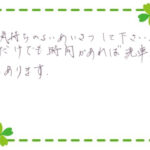 気持ちのよいあいさつして下さい.
だけでも時間があれば洗車
あります.